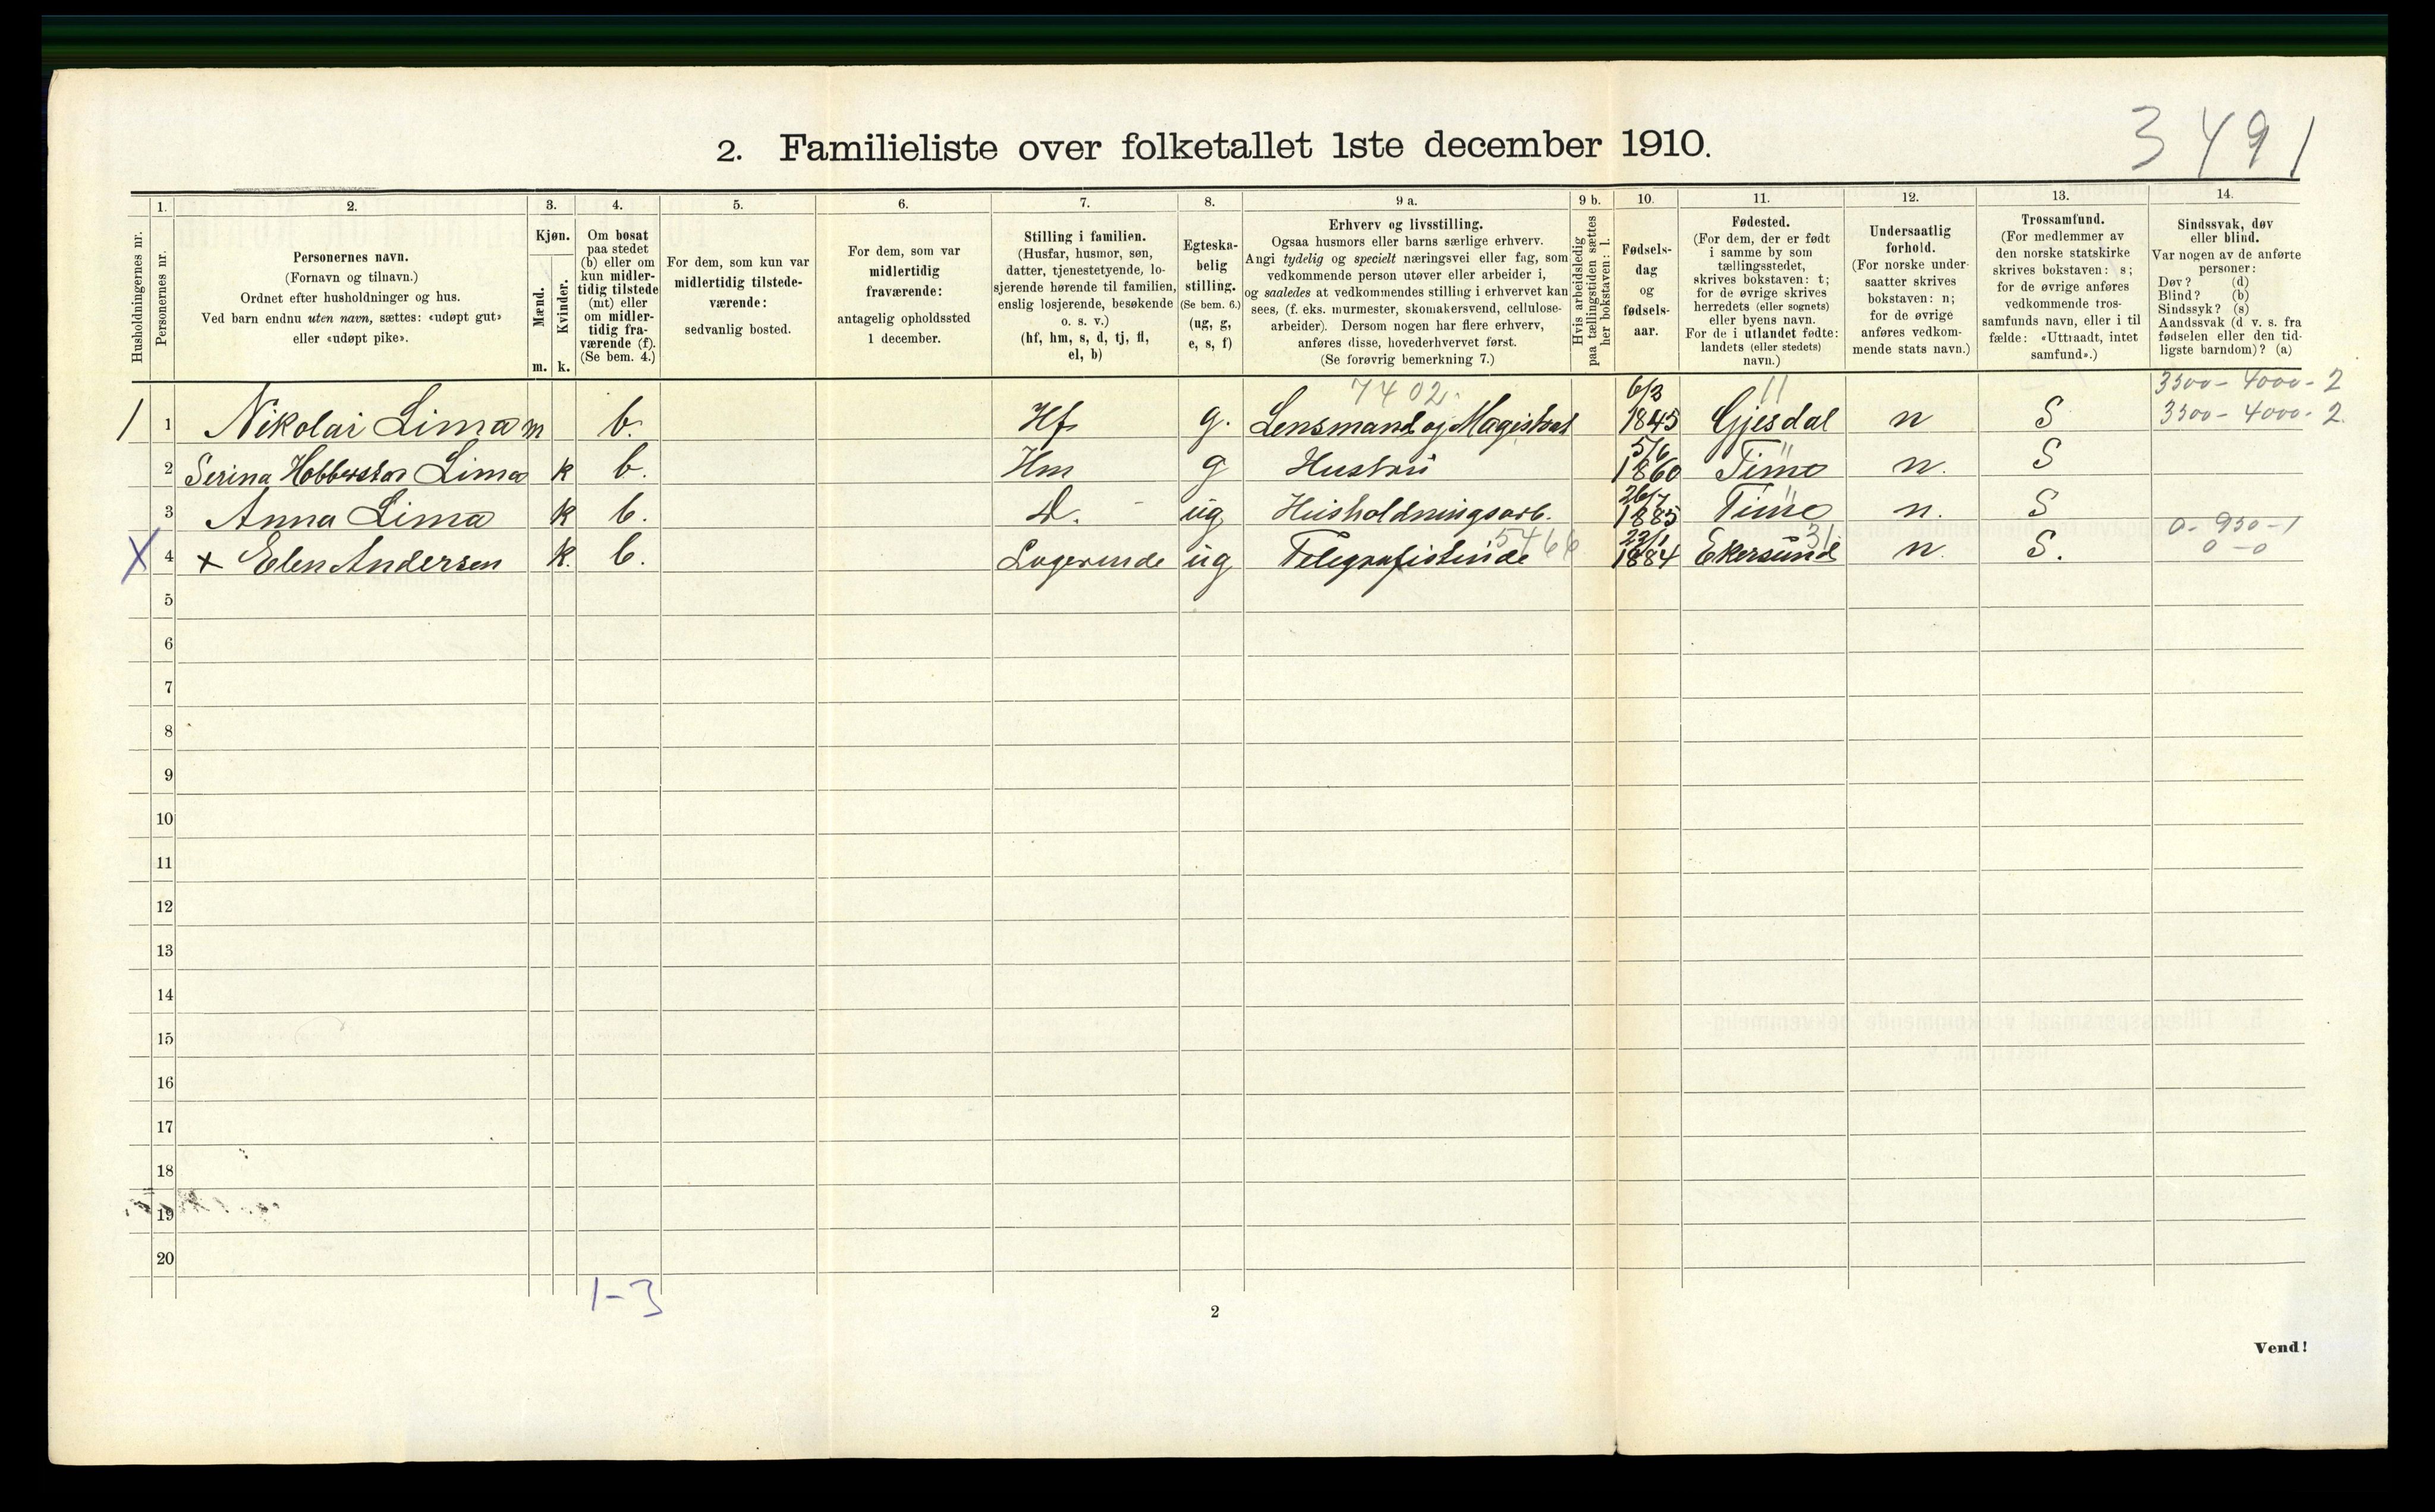 3491
2. Familieliste over folketallet 1ste december 1910.
1. 2. 3. 4. 5. 6. 7. 8. 9 a. 9 b. 10. 11. 12. 13. 14.
Husholdningernes nr.
Personernes nr.
Personernes navn.
(Fornavn og tilnavn.)
Ordnet efter husholdninger og hus.
Ved barn endnu uten navn, sættes: «udøpt gut»
eller «udøpt pike».
Kjøn.
Mænd.
Kvinder.
m. k.
Om bosat
paa stedet
(b) eller om
kun midler-
tidig tilstede
(mt) eller
om midler-
tidig fra-
værende (f).
(Se bem. 4.)
For dem, som kun var
midlertidig tilstede-
værende:
sedvanlig bosted.
For dem, som var
midlertidig
fraværende:
antagelig opholdssted
1 december.
Stilling i familien.
(Husfar, husmor, søn,
datter, tjenestetyende, lo-
sjerende hørende til familien,
enslig losjerende, besøkende
o. s. v.)
(hf, hm, s, d, tj, fl,
el, b)
Egteska-
belig
stilling.
(Se bem. 6.)
(ug, g,
e, s, f)
Erhverv og livsstilling.
Ogsaa husmors eller barns særlige erhverv.
Angi tydelig og specielt næringsvei eller fag, som
vedkommende person utøver eller arbeider i,
og saaledes at vedkommendes stilling i erhvervet kan
sees, (f. eks. murmester, skomakersvend, cellulose-
arbeider). Dersom nogen har flere erhverv,
anføres disse, hovederhvervet først.
(Se forøvrig bemerkning 7.)
Hvis arbeidsledig
paa tællingstiden sættes
her bokstaven: l.
Fødsels-
dag
og
fødsels-
aar.
Fødested.
(For dem, der er født
i samme by som
tællingsstedet,
skrives bokstaven: t;
for de øvrige skrives
herredets (eller sognets)
eller byens navn.
For de i utlandet fødte:
landets (eller stedets)
navn.)
Undersaatlig
forhold.
(For norske under-
saatter skrives
bokstaven: n;
for de øvrige
anføres vedkom-
mende stats navn.)
Trossamfund.
(For medlemmer av
den norske statskirke
skrives bokstaven: s;
for de øvrige anføres
vedkommende tros-
samfunds navn, eller i til
fælde: «Uttraadt, intet
samfund».)
Sindssvak, døv
eller blind.
Var nogen av de anførte
personer:
Døv? (d)
Blind? (b)
Sindssyk? (s)
Aandssvak (d v. s. fra
fødselen eller den tid-
ligste barndom)? (a)
7402. 6/3 11 3500 - 4000 - 2
1 1 Nikolai Lima m b. Hf g. Lensmand og Magistrat 1845 Gjesdal n S 3500 - 4000 - 2.
5/6
2 Serina Hobberstad Lima k b. Hm g Hustru 1860 Time n. S
26/7
3 Anna Lima k b. D. - ug Husholdningsarb. 1885 Time n. S
5466 22/1 31 0 - 950 - 1
X 4 x Elen Andersen k. b. Logerende ug Telegrafistinde 1884 Ekersund n. S. 0 - 0
5
6
7
8
9
10
11
12
13
14
15
16
17
18
19
20
1-3
2
Vend!